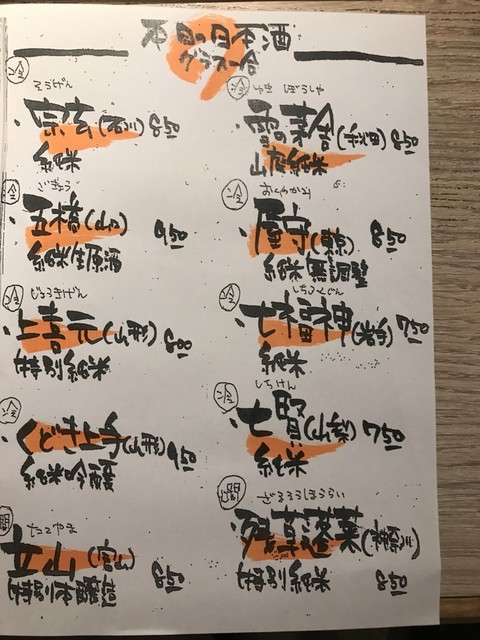 本日の日本酒
グラス一合
冷
そうげん
・宗玄(石川) 850
純米
冷
ごきょう
・五橋(山口) 950
純米生原酒
冷
じょうきげん
・上喜元(山形) 800
特別純米
冷
・くどき上手(山形) 950
純米吟醸
たてやま
立山(富山) 850
特別本醸造
冷
ゆき ぼうしゃ
・雪の茅舎(秋田) 850
山廃純米
冷
おくのかみ
・屋守(東京) 850
純米無調整
冷
しちふくじん
・七福神(岩手) 750
純米
冷
しちけん
・七賢(山梨) 750
純米
ざるそうほうらい
・残草蓬莱(神奈川)
特別純米 850